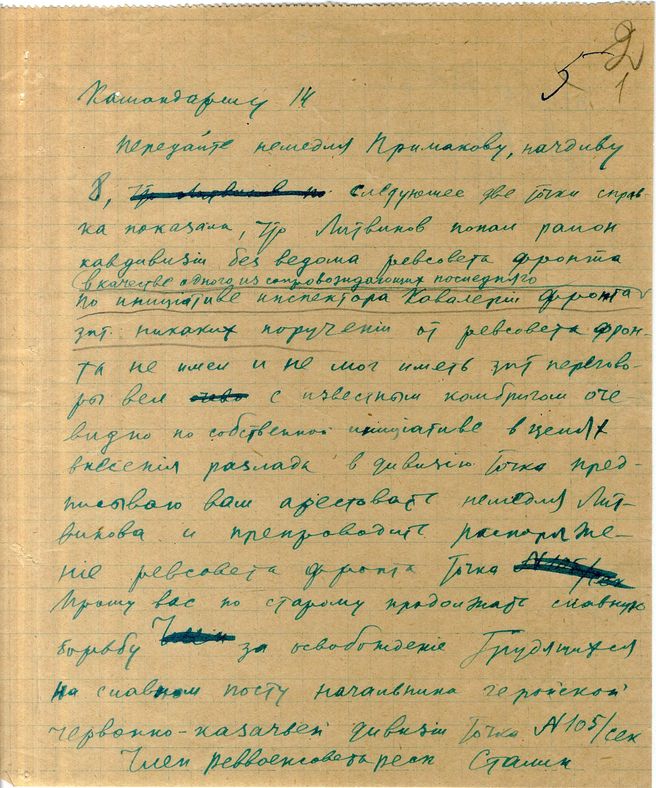 5 2
1
Командарму 14
Передайте немедля Примакову, начдиву
8, следующее две точки справ-
ка показала, тр Литвинов попал район
кавдивизіи без ведома ревсовета фронта
в качестве одного из сопровождающих последняго
по иниціативе инспектора Кавалеріи фронта
зпт никаких порученіи от ревсовета фрон-
та не имел и не мог иметь зпт перегово-
ры вел с известным комбригом оче
видно по собственной иниціативе в целях
внесенія разлада в дивизію Точка пред-
писываю вам арестовать немедля Лит-
винова и препроводить распоряже-
ніе ревсовета фронта Точка N105/сек
Прошу вас по старому продолжать славную
борьбу за освобожденіе Трудящихся
на славном посту начальника геройской
червонно-казачьей дивизіи Точка N105/сек
Член Реввоенсовета Сталин